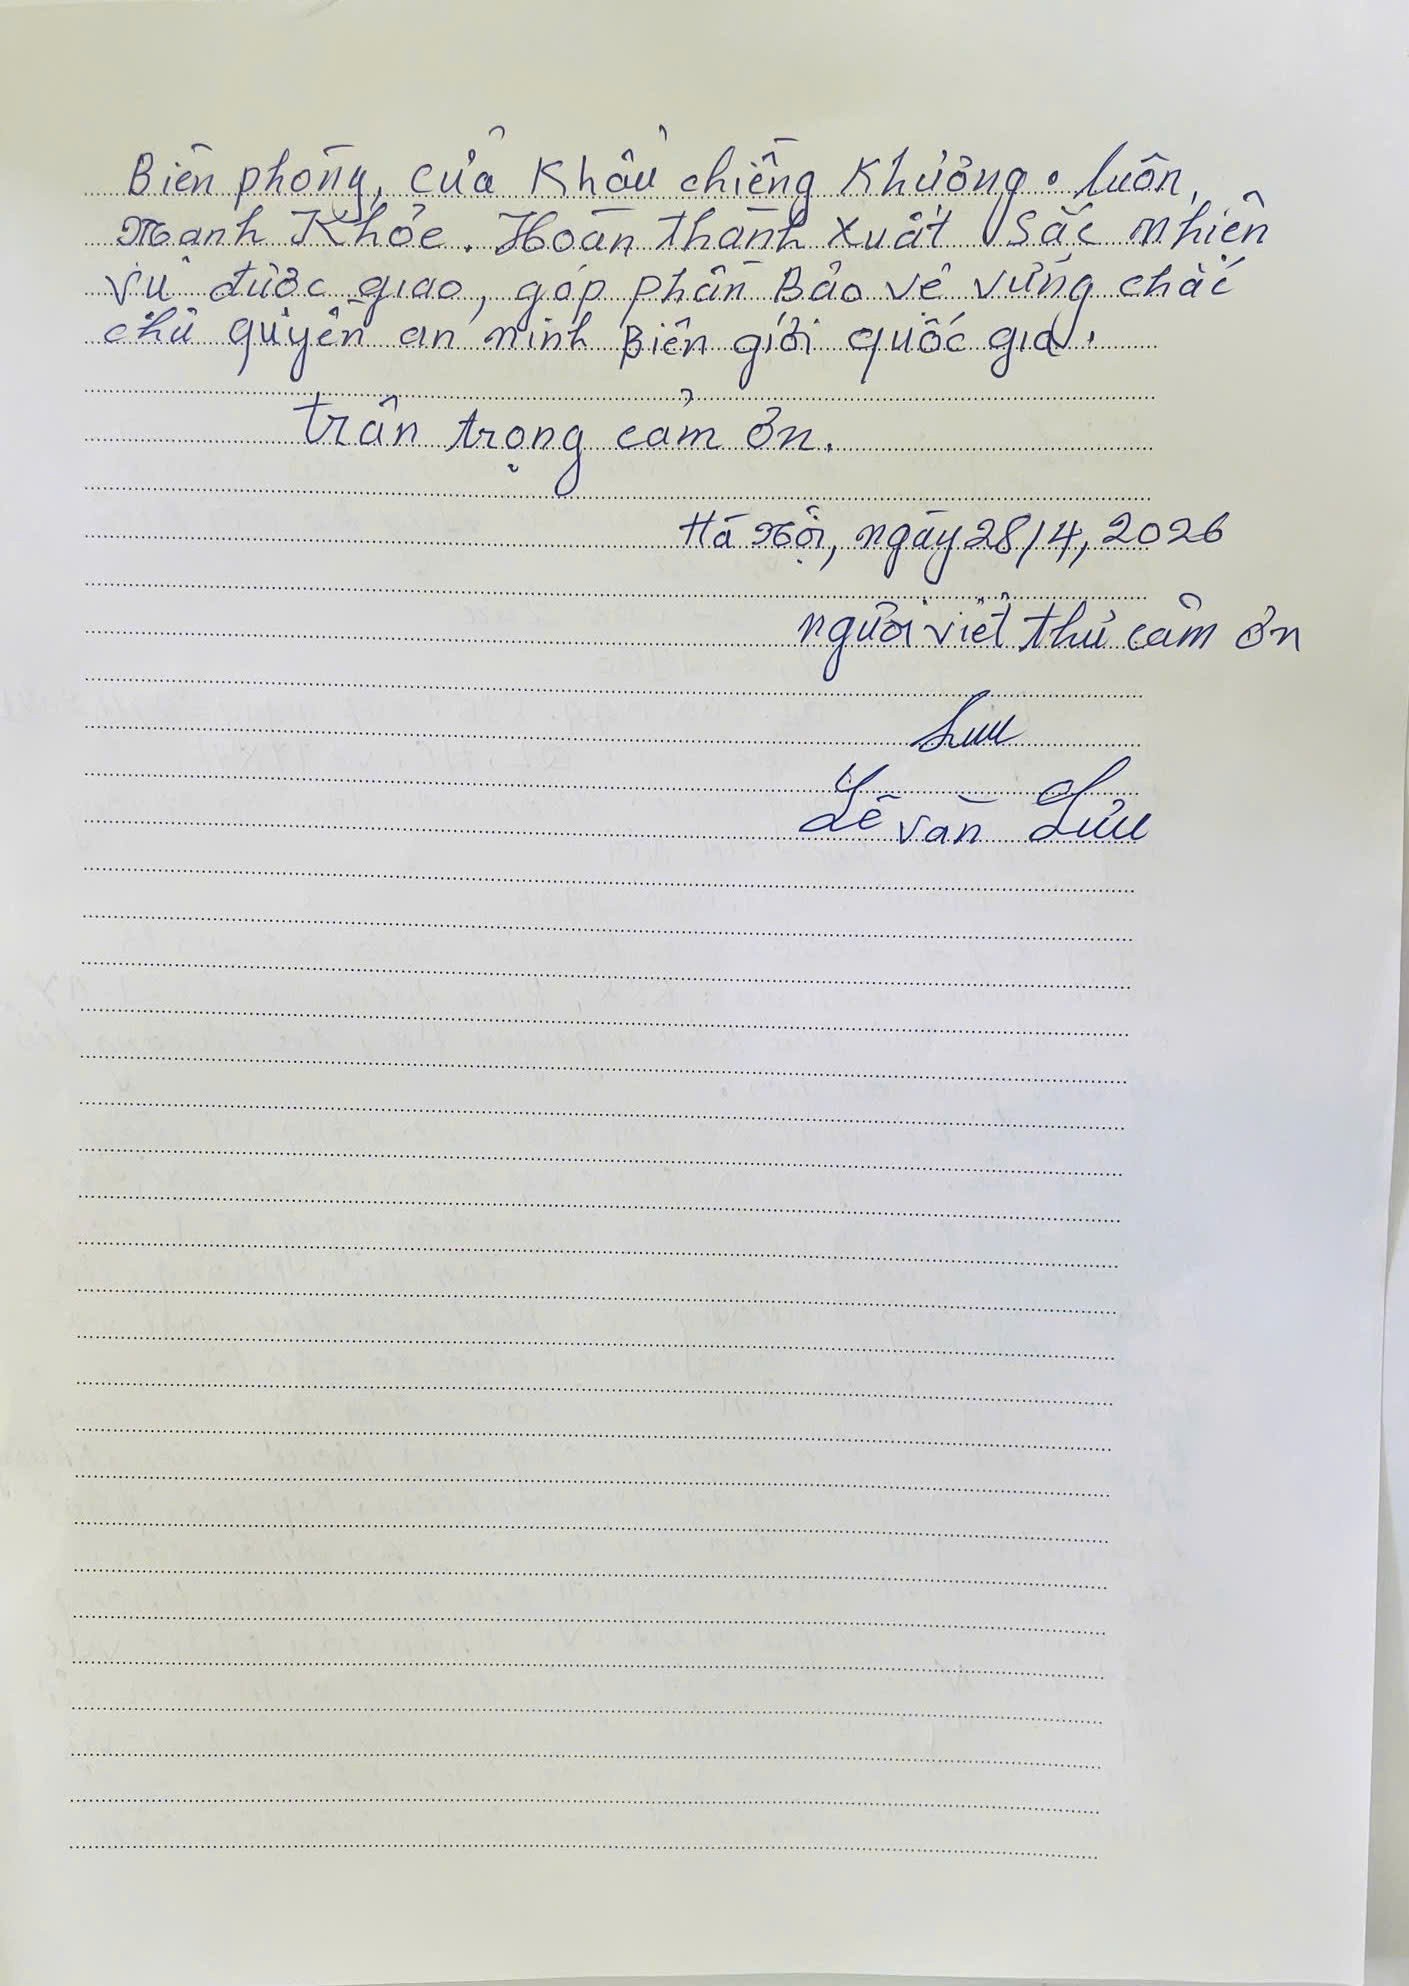 Biên phòng, cửa Khẩu chiềng Khương. luôn,
Mạnh Khỏe. Hoàn thành xuất sắc nhiện
vụ được giao, góp phần Bảo vệ vững chắc
chủ quyền an ninh Biên giới quốc gia.
trân trọng cảm ơn.
Hà Nội, ngày 28/4, 2026
người viết thư cảm ơn
Lưu
Lê Văn Lưu